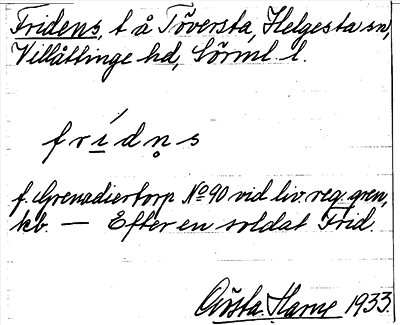 Fridens, t å Töversta, Helgesta sn,
Villåttinge hd, Sörml. l.
frídṇs
f. Grenadiertorp No 90 vid liv. reg. gren,
kb. — Efter en soldat Frid.
Gösta Harne 1933.